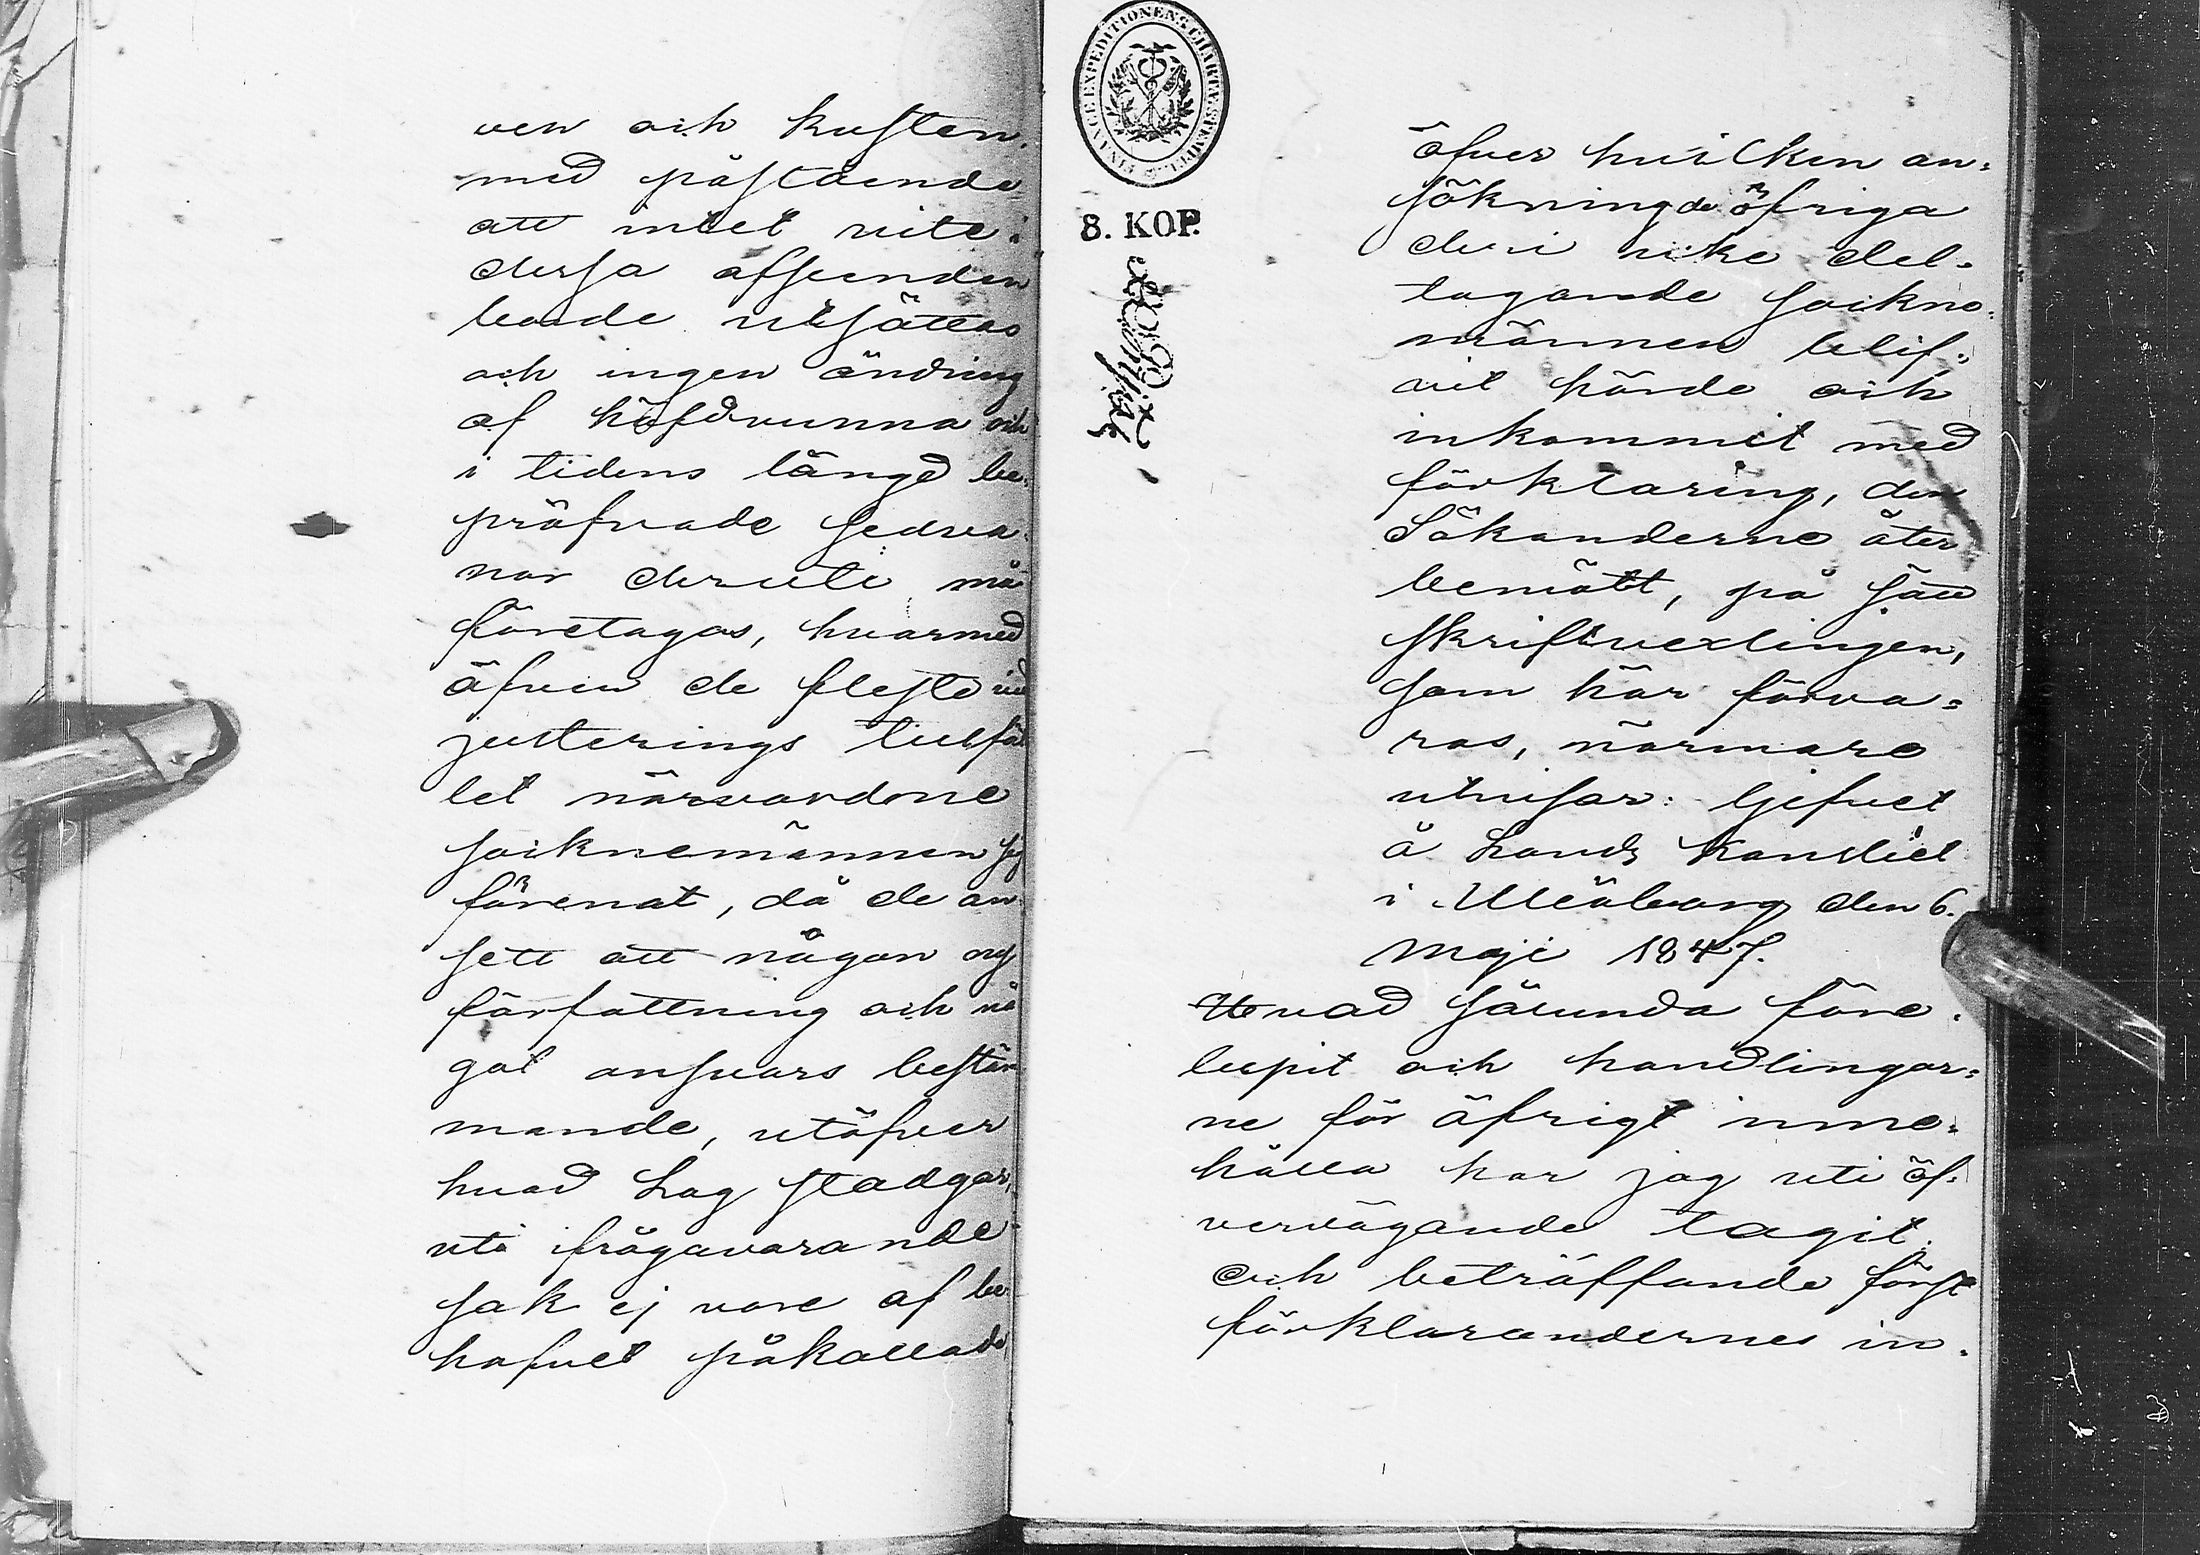 ven och kusten
med påstående
att intet vite i
dessa afseenden
borde utsättas
och ingen ändring
af häfdvunna och
i tidens längd be-
pröfvade sedva-
nor deruti må
företagas, hvarmed
äfven de fleste vid
justerings tillfäl
let närvardne
sockne männen sig
förenat, då de an-
sett att någon ny
författning och nå
got ansvars bestäm
mande, utöfver
hvad Lag stadgar,
uti ifrågavarande
sak ej vore af be-
hofvet påkallade
FINANCE EXPEDITIONENS CHARTÆ STEMPEL
8. KOP.
öfver hvilken an-
sökning de öfriga
deri icke del-
tagande sockne-
männen blif-
vit hörde och
inkommit med
förklaring, den
Sökanderne åter
bemött, på sätt
skriftvexlingen,
som här förva-
ras, närmare
utvisar: Gifvet
å Lands Kansliet
i Uleåborg den 6.
Maji 1847.
Hvad sålunda före-
lupit och handlingar-
ne för öfrigt inne-
hålla har jag uti öf-
vervägande tagit:
och beträffande först
förklarandernes in-